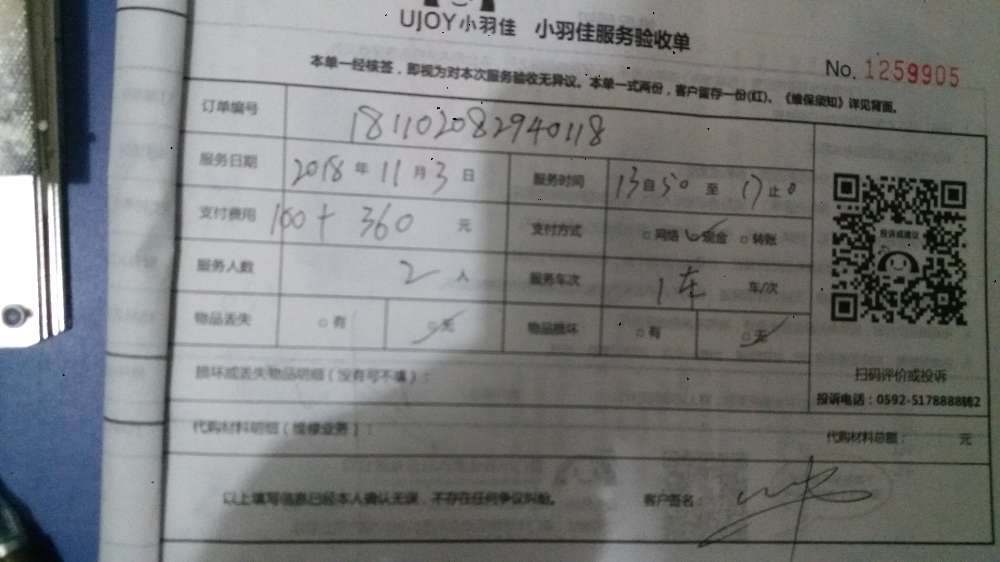 UJOY小羽佳 小羽佳服务验收单
No. 1259905
本单一经核签，即视为对本次服务验收无异议。本单一式两份，客户留存一份(红)。《维保须知》详见背面。
订单编号 181102082940118
服务日期 2018 年 11 月 3 日 服务时间 13 自 50 至 17 止 0
支付费用 100 + 360 元 支付方式 □ 网络 □ 现金 □ 转账
服务人数 2 人 服务车次 1车 车/次
物品丢失 □ 有 □ 无 物品损坏 □ 有 □ 无
投诉或建议
损坏或丢失物品明细（没有可不填）：
扫码评价或投诉
投诉电话：0592-5178888转2
代购材料明细（维修业务）： 代购材料总额： 元
以上填写信息已经本人确认无误，不存在任何争议纠纷。 客户签名：